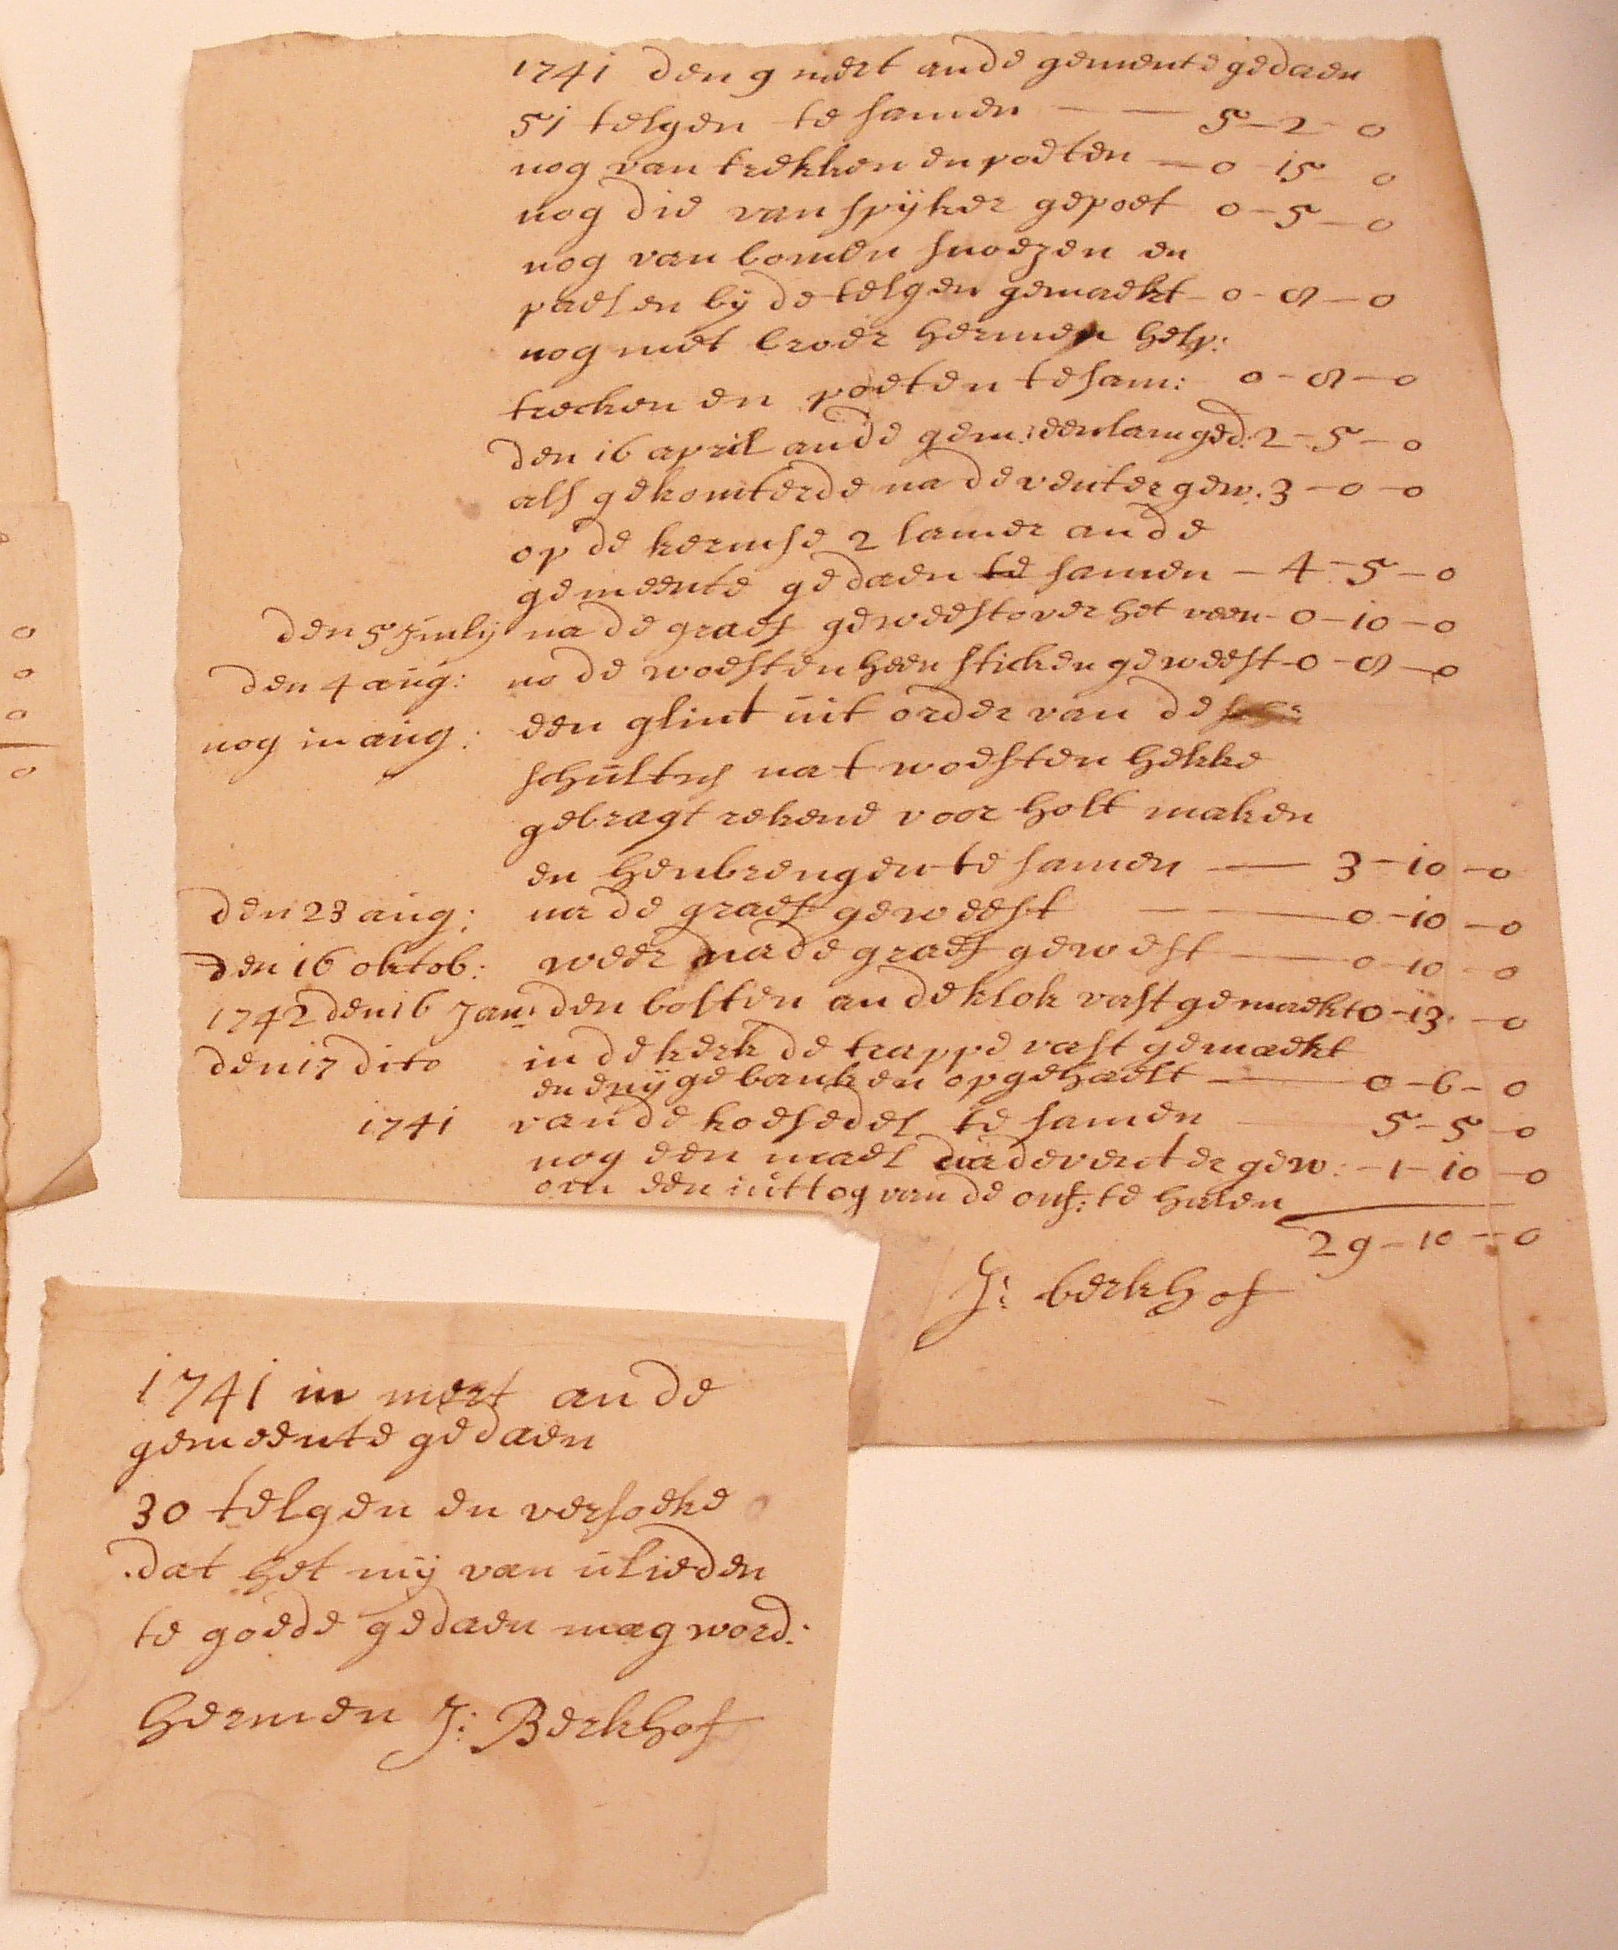 1741 den 9 mert ande gemente gedaen
51 telgen te samen — — 5-2-0
nog van trekken en poeten — 0-15-0
nog die van spijker gepoet 0-5-0
nog van bomen snoezen en
paelen bij de telgen gemaekt - 0-8-0
nog met broer hermen help:
trecken en poeten te sam: 0-8-0
den 16 april ande gem: een lam ged: 2-5-0
als gekomterde na deventer gew: 3-0-0
op de kermse 2 lamer ande
gemeente gedaen te samen - 4-5-0
den 5 Junlij na de graef geweest over het veen - 0-10-0
den 4 aug: no de woesten heen sticken geweest - 0-8-0
nog in aug: een glint uit order van de
schults na t woesten hekke
gebragt rekene voor holt maken
en henbrengen te samen — 3-10-0
den 23 aug: na de graef geweest — 0-10-0
den 16 oktob: weer na de graef gewest — 0-10-0
1742 den 16 Jan: den bolten an de klok vast gemaekt 0-13-0
den 17 dito in de kerk de trappe vast gemaekt
en enige banken opgehaelt — 0-6-0
1741 van de koesedel te samen 5-5-0
nog een mael na deventer gew: - 1-10-0
om een uittog van de onf: te halen
29-10-0
J: berkhof
1741 in mert an de
gemeente gedaen
30 telgen en versoeke
dat het mij van ulieden
te goede gedaen mag word:
Hermen J: Berkhof
0
0
0
0